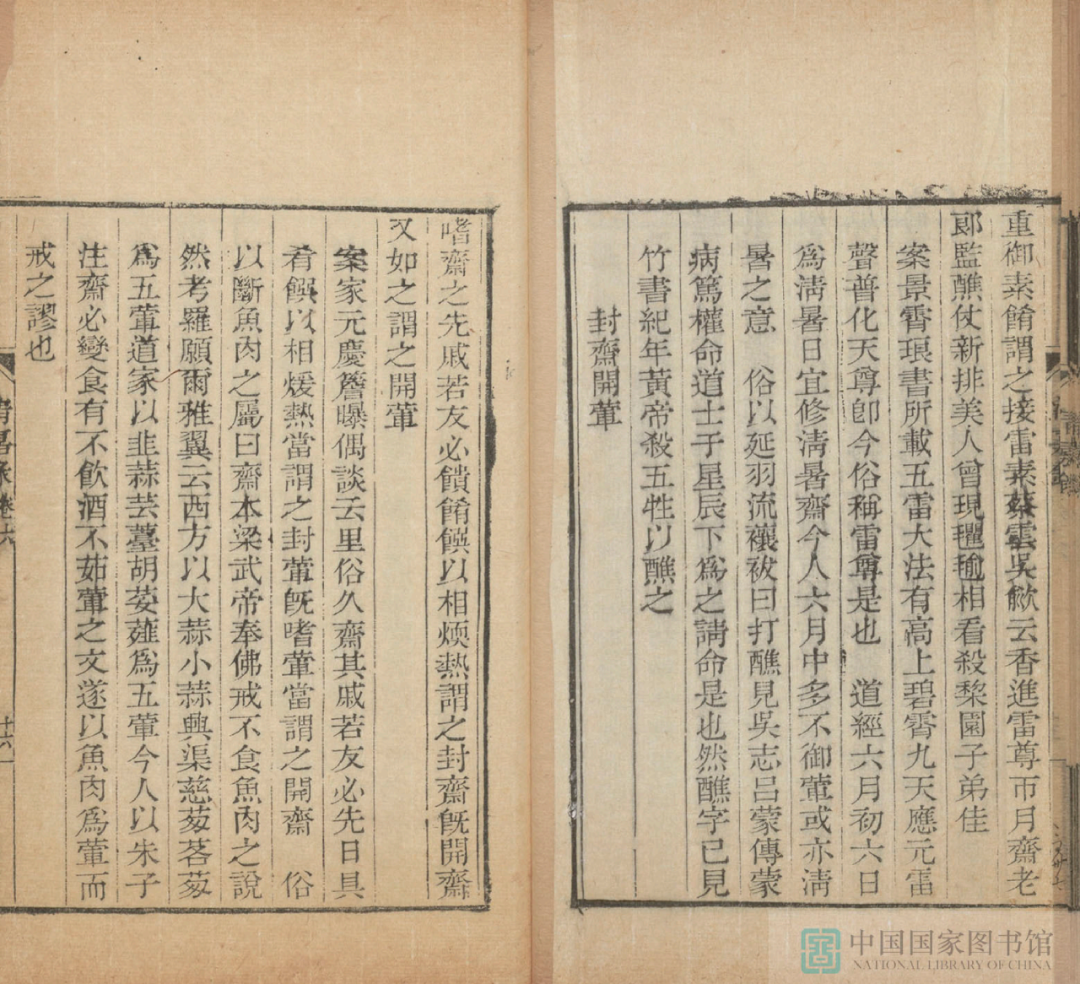 重御素餚謂之接雷素蔡雲吳歈云香進雷尊帀月齋老
郎監醮仗新排美人曾現氍毹相看殺棃園子弟佳
案景霄琅書所載五雷大法有高上碧霄九天應元雷
聲普化天尊卽今俗稱雷尊是也 道經六月初六日
爲淸暑日宜修淸暑齋今人六月中多不御葷或亦淸
暑之意 俗以延羽流禳祓曰打醮見吳志呂蒙傳蒙
病篤權命道士于星辰下爲之請命是也然醮字已見
竹書紀年黃帝殺五牲以醮之
封齋開葷
嗜齋之先戚若友必饋餚饌以相煗熱謂之封齋旣開齋
又如之謂之開葷
案家元慶簷曝偶談云里俗久齋其戚若友必先日具
肴饌以相煖熱當謂之封葷旣嗜葷當謂之開齋 俗
以斷魚肉之屬曰齋本梁武帝奉佛戒不食魚肉之說
然考羅願爾雅翼云西方以大蒜小蒜興渠慈䓤茖䓤
爲五葷道家以韭蒜芸薹胡荽薤爲五葷今人以朱子
注齋必變食有不飮酒不茹葷之文遂以魚肉爲葷而
戒之謬也
卷六
十六
中国国家图书馆
NATIONAL LIBRARY OF CHINA